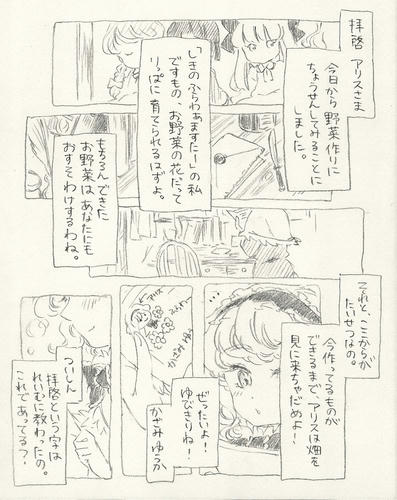 拝啓 アリスさま
今日から野菜作りに
ちょうせんしてみることに
しました。
「しきのふらわぁますたー」の私
ですもの お野菜の花だって
りっぱに育てられるはずよ。
もちろんできた
お野菜は、あなたにも
おすそわけするわね。
それと、ここからが
たいせつなの。
今作ってるものが
できるまで、アリスは畑を
見に来ちゃだめよ!
アリス
かざみゆうか
ぜったいよ!
ゆびきりね!
かざみゆうか
ついしん
拝啓という字は
れいむに教わったの。
これであってるっ?